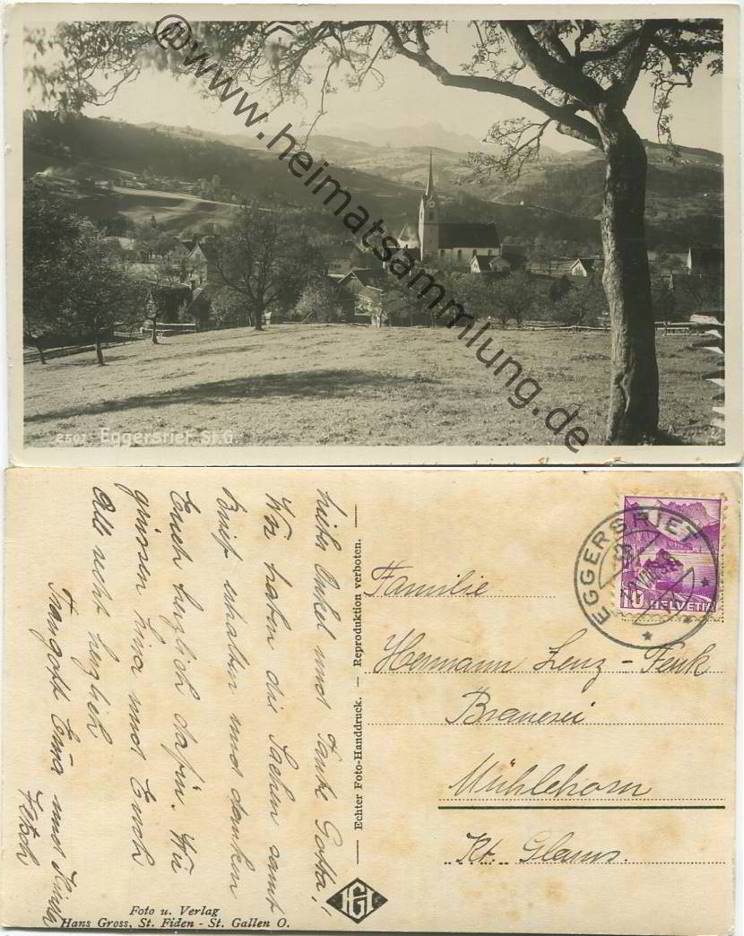 ©www.heimatsammlung.de
2507 Eggersriet St.G.
EGGERSRIET
10 HELVETIA
Familie
Hermann Lenz-Fenk
Brauerei
Mühlehorn
Kt. Glarus.
Echter Foto-Handdruck. — Reproduktion verboten.
HGL
liebe Onkel und Tante Gotta!,
Wir haben die Sachen samt
Brief erhalten und danken
Euch herzlich dafür. Wir
grüssen Lina und Euch
All recht herzlich
Traugott Erna und Kinder
Foto u. Verlag
Hans Gross, St. Fiden - St. Gallen O.